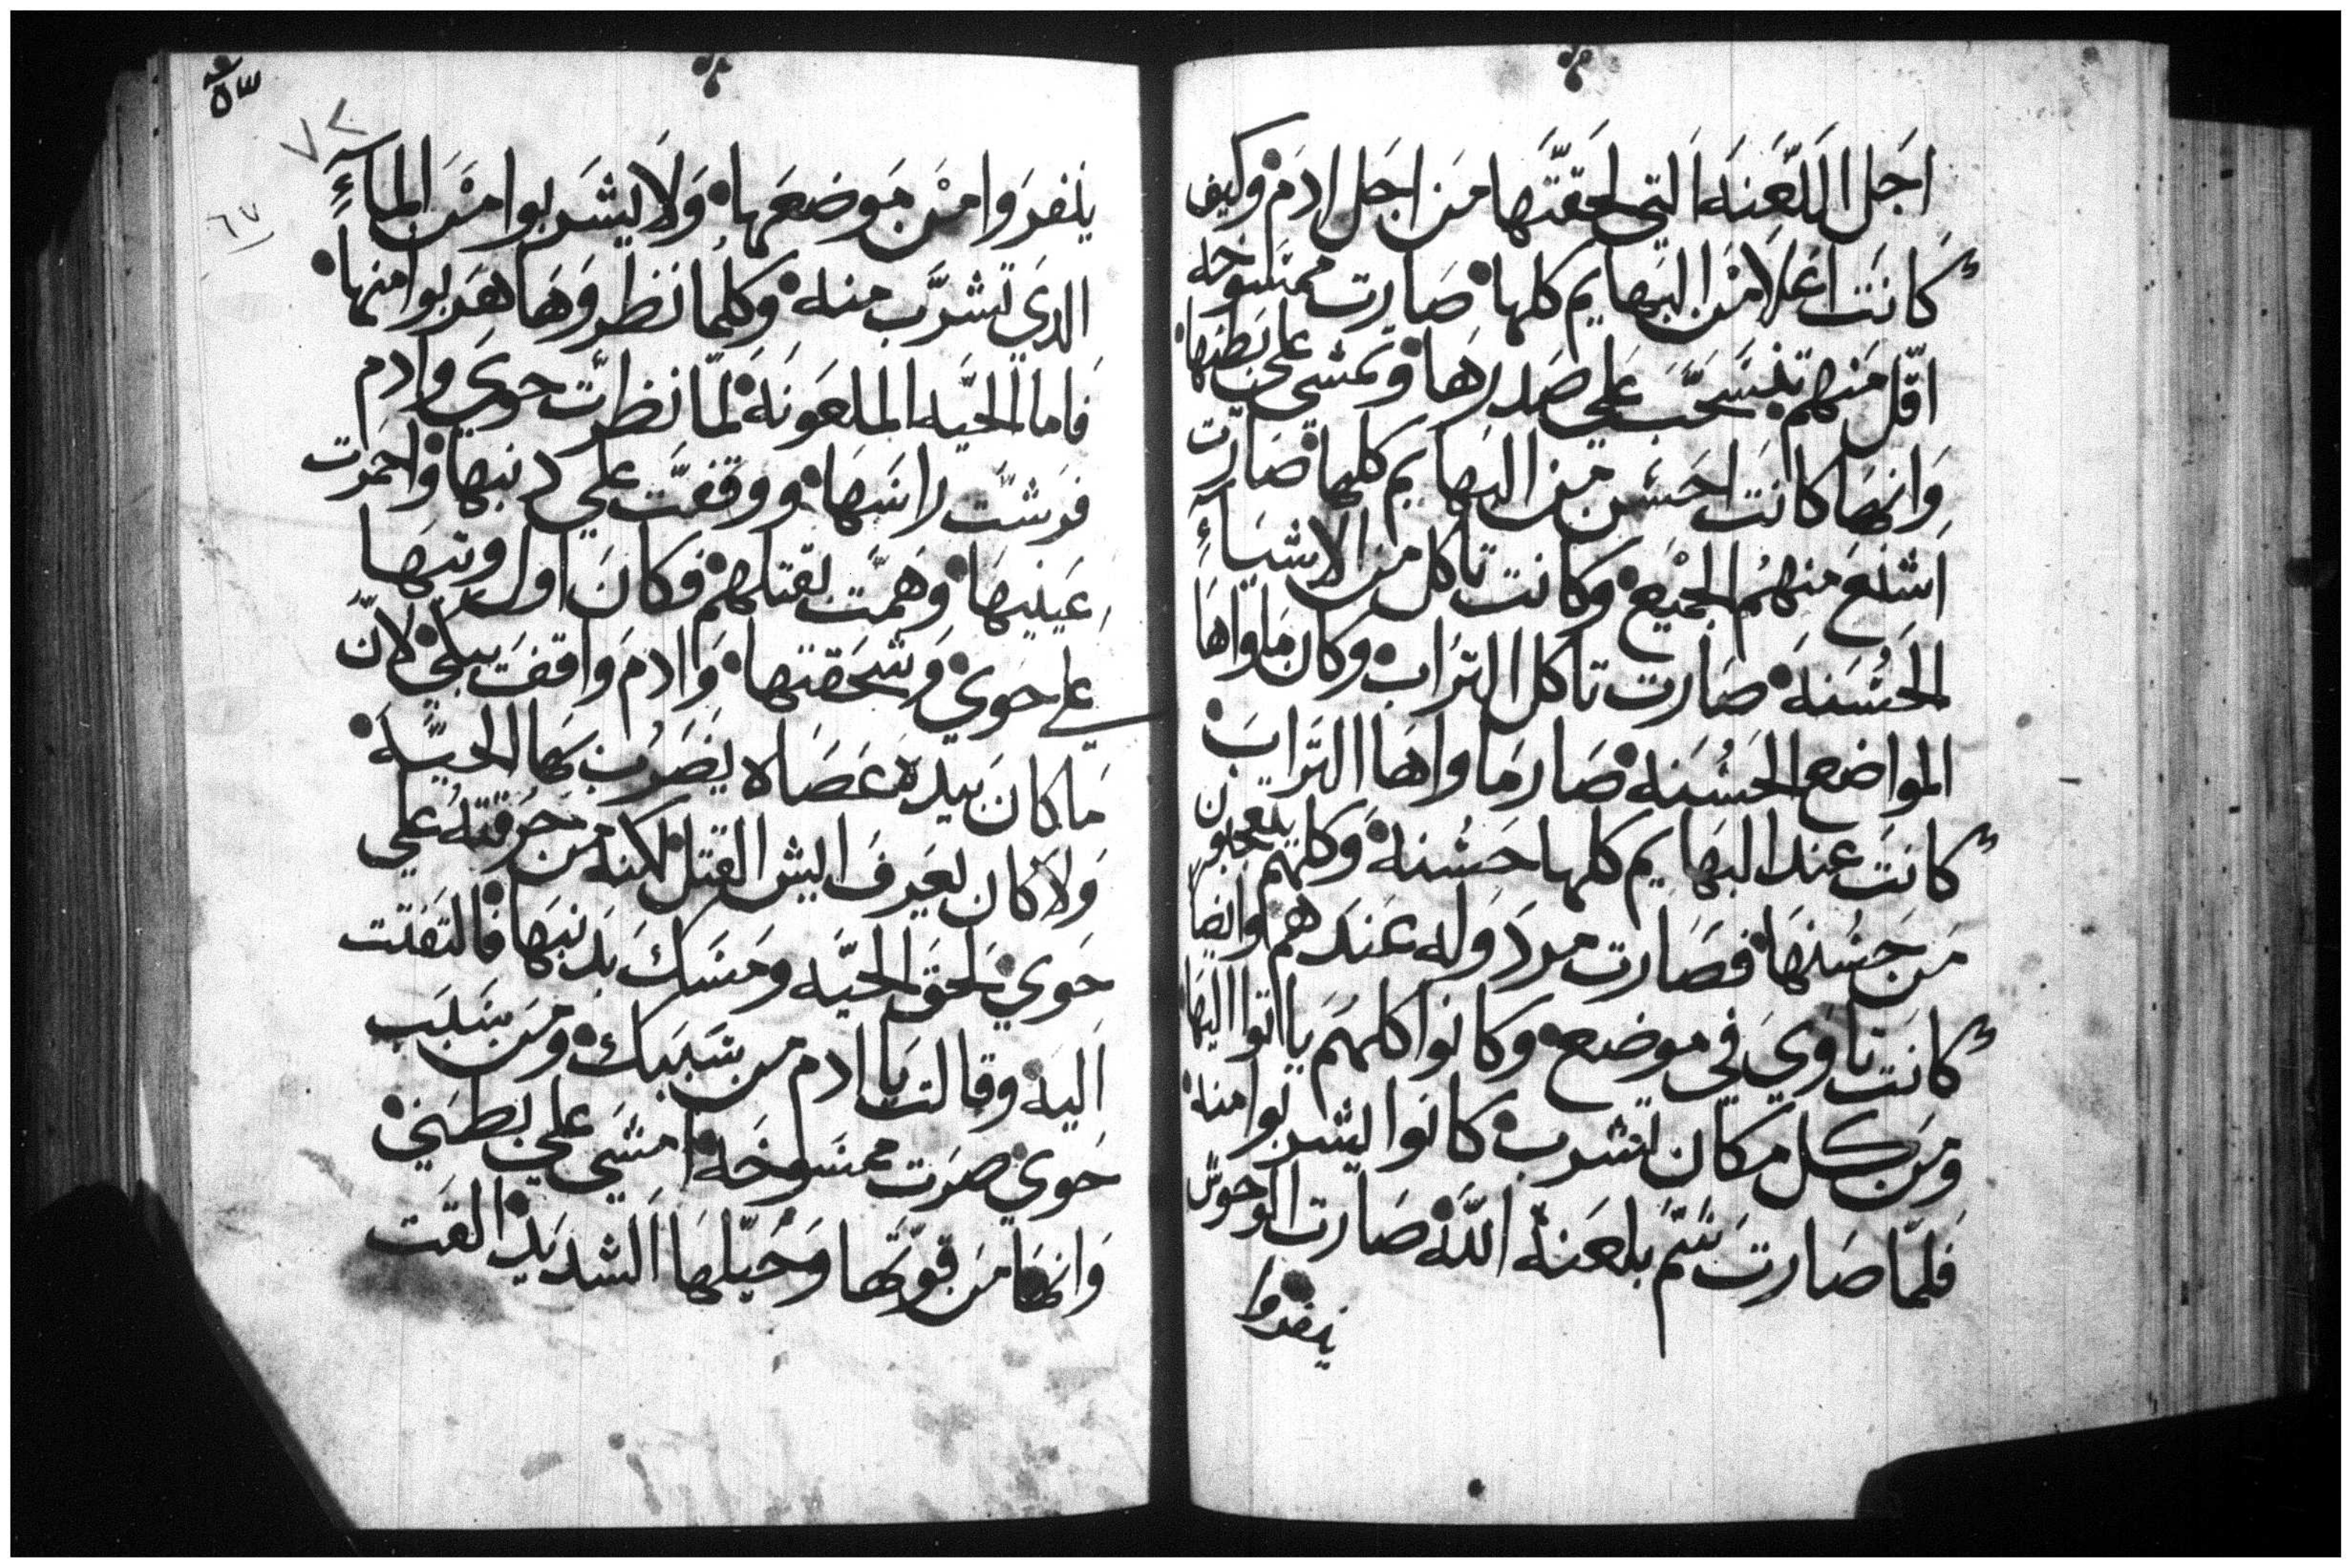 اجل اللعنه التي لحقتها من اجل ادم وكيف
كانت اعلا من البهايم كلها صارت ممسوخه
اقل منهم تنسحب علي صدرها وتمشي علي بطنها
وانها كانت احسن من البهايم كلها صارت
اشنع منهم الجميع وكانت تاكل من الاشياء
الحسنه صارت تاكل التراب وكان ماواها
المواضع الحسنه صار ماواها التراب
كانت عند البهايم كلها حسنه وكلهم يتعجبون
من حسنها فصارت مردوله عندهم وايضا
كانت تاوي في موضع وكانوا كلهم ياتوا اليها
ومن كل مكان تشرب كانوا يشربوا منه
فلما صارت سم بلعنة الله صارت الوحوش
ينفروا
٥٣
٧٢
٦٧
ينفروا من موضعها ولا يشربوا من الماء
الدي تشرب منه وكلما نظروها هربوا منها
فاما الحيه الملعونه لما نظرت حوي وادم
فرشت راسها ووقفت علي دنبها واحمرت
عينيها وهمت لقتلهم فكان اول وتبها
علي حوي وشحقتها وادم واقف يبكي لان
ما كان بيده عصاه يضرب بها الحيه
ولا كان يعرف ايش القتل لانه من حرقته علي
حوي لحق الحيه ومسك بدنبها فالتفتت
اليه وقالت يا ادم من سببك ومن سبب
حوي صرت ممسوخه امشي علي بطني
وانها من قوتها وحيلها الشديد القت